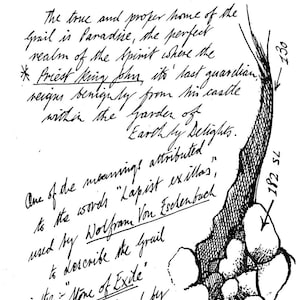 The true and proper home of the
Grail is Paradise, the perfect
realm of the Spirit where the
* Priest King John, its last guardian,
reigns benignly from his castle
within the garden of
Earthly Delights.
One of the meanings attributed
to the words "Lapist exillas,"
used by Wolfram Von Eschenbach
to describe the Grail
is "Stone of Exile"
by
130
182 SL